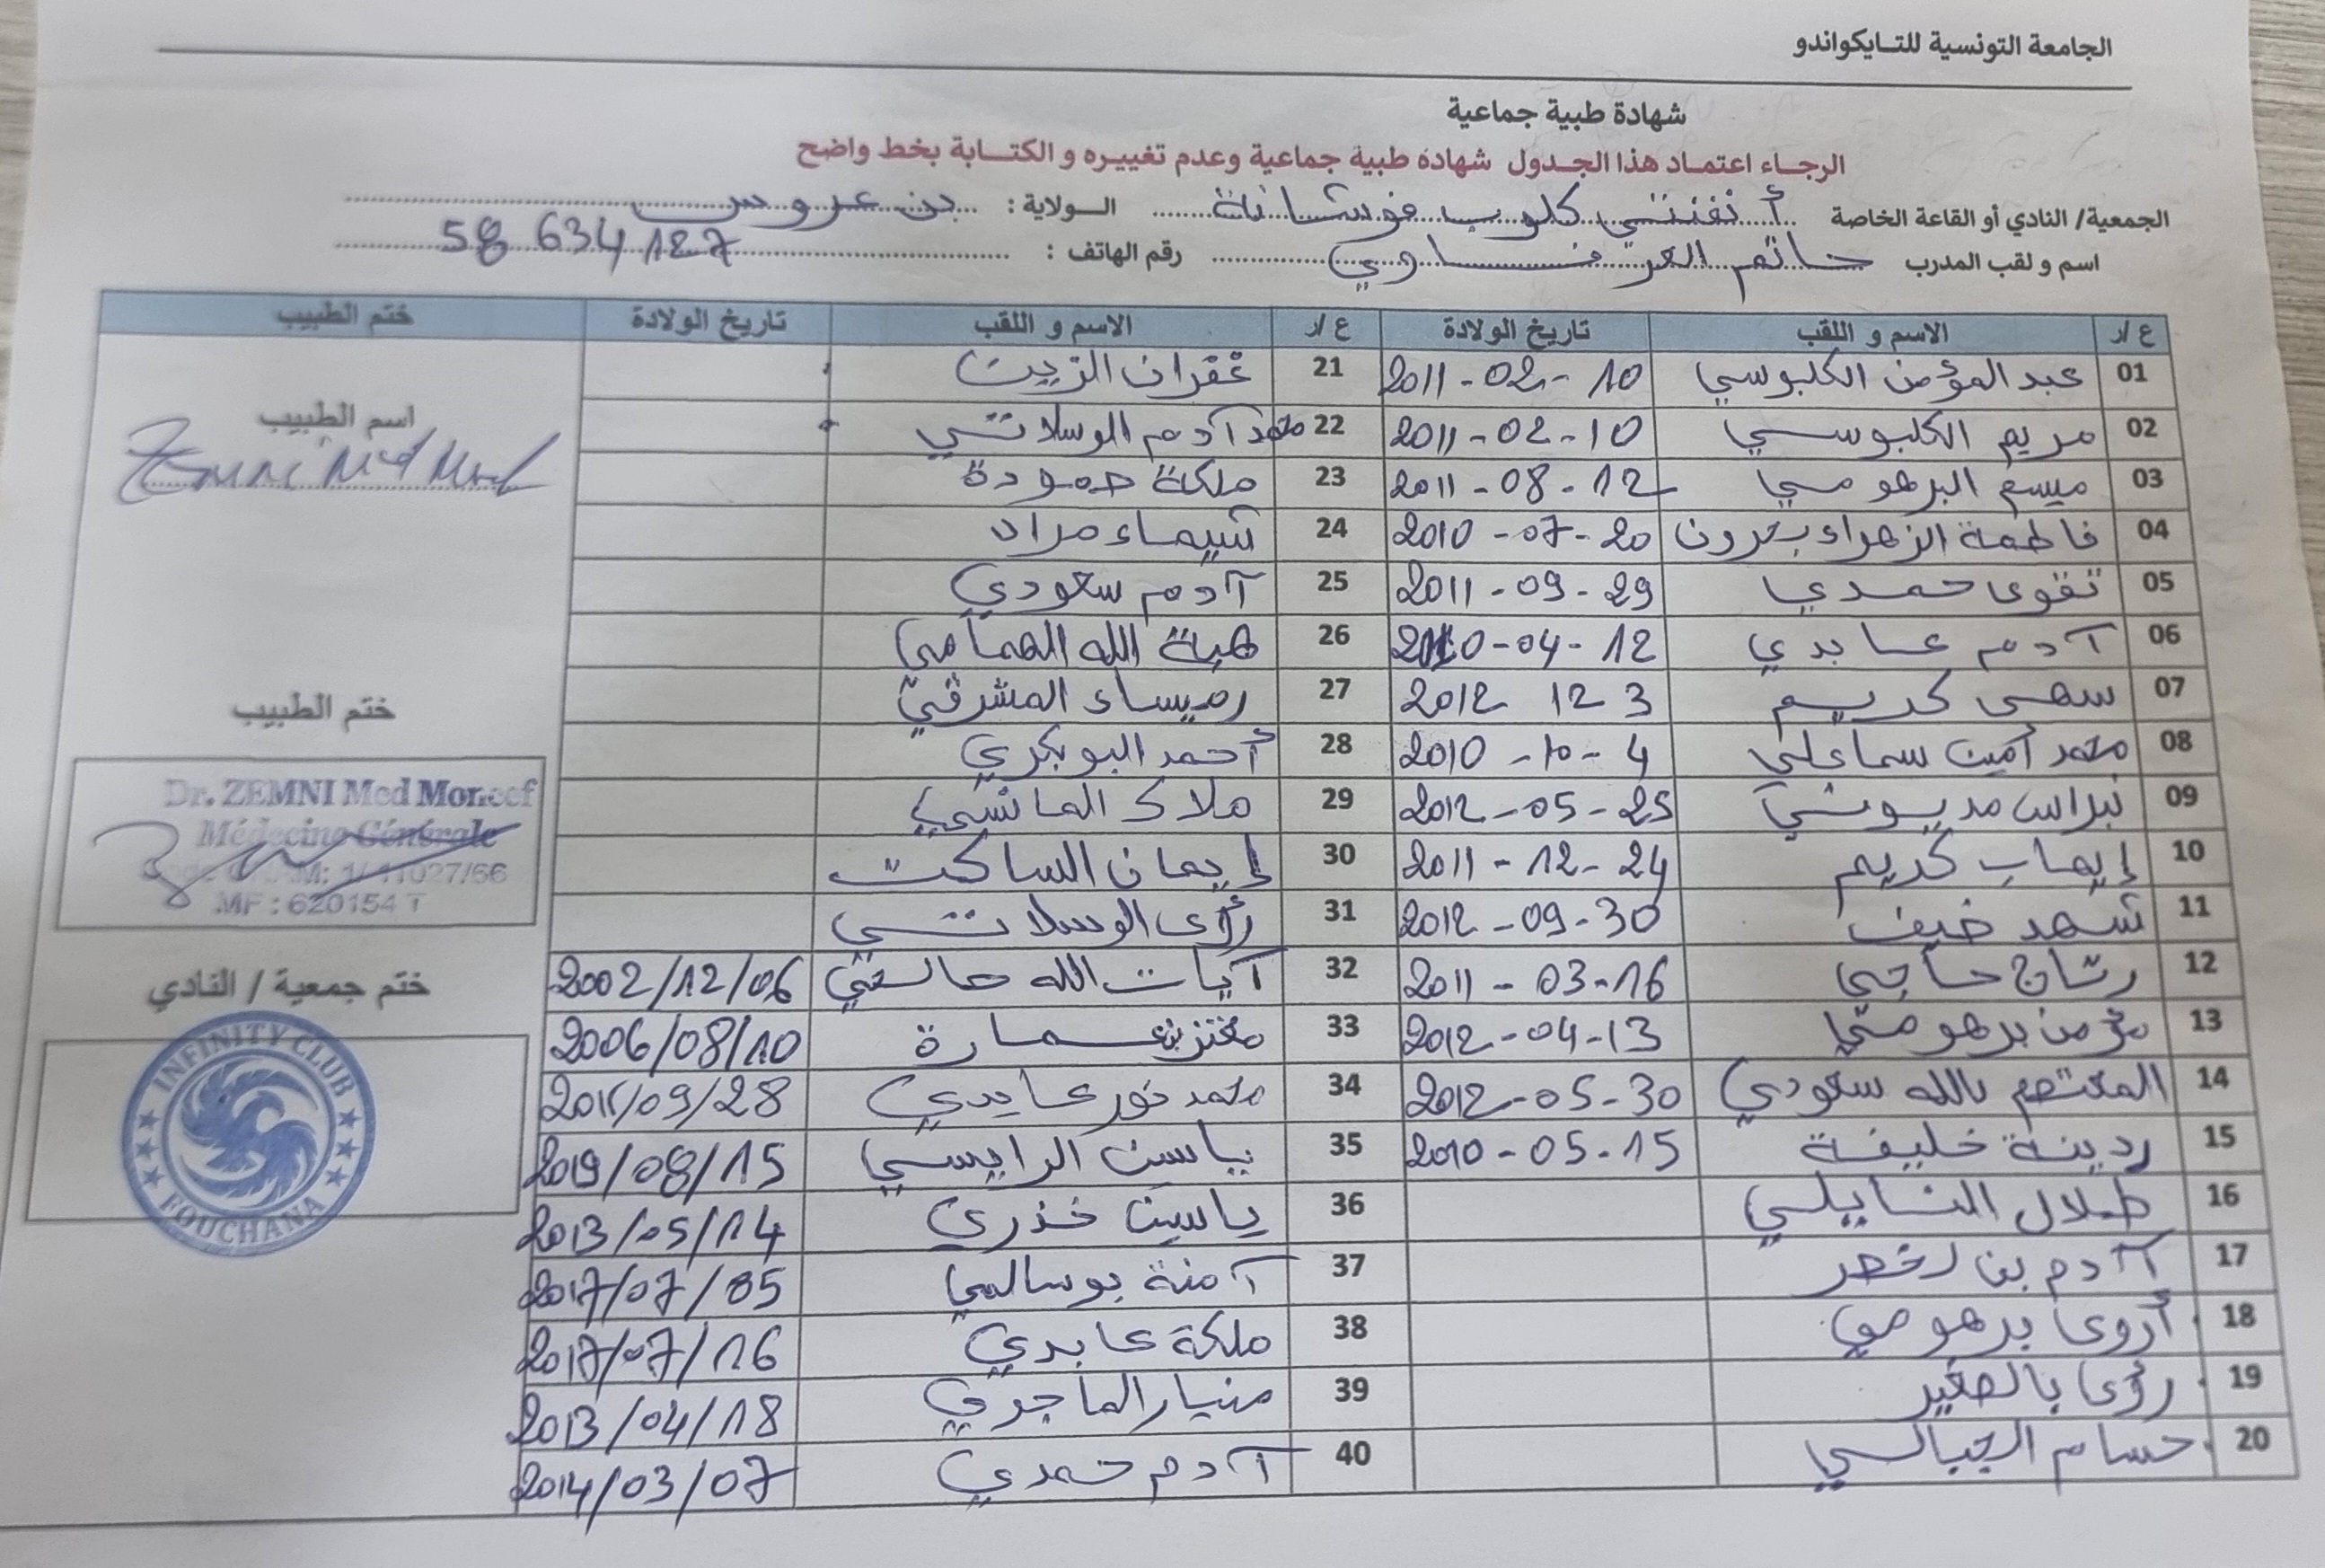 الجامعة التونسية للتايكواندو
شهادة طبية جماعية
الرجاء اعتماد هذا الجدول شهادة طبية جماعية وعدم تغييره و الكتابة بخط واضح
الجمعية/ النادي أو القاعة الخاصة أنفنتي كلوب فوشانة الولاية : بن عروس
اسم و لقب المدرب حاتم العرفاوي رقم الهاتف : 58 634 127
ع /ر الاسم و اللقب تاريخ الولادة ع /ر الاسم و اللقب تاريخ الولادة ختم الطبيب
01 عبد المؤمن الكلبوسي 2011-02-10 21 غفران الزيت
02 مريم الكلبوسي 2011-02-10 22 محمد آدم الوسلاتي
03 ميسم البرهومي 2011-08-12 23 ملكة حمودة
04 فاطمة الزهراء 2010-07-20 24 شيماء مراد
05 تقوى حمدي 2011-09-29 25 آدم سعودي
06 آدم عابدي 2010-04-12 26 هبة الله الهمامي
07 سهى كريم 2012 12 3 27 رميساء المشرقي
08 محمد أمين سماعلي 2010-10-4 28 أحمد البوبكري
09 نبراس مديوني 2012-05-25 29 ملاك المانسي
10 إيهاب كريم 2011-12-24 30 إيمان الساكت
11 شهد ضيف 2012-09-30 31 رؤى الوسلاتي
12 حاجي 2011-03-16 32 آيات الله 2002/12/06
13 مؤمن برهومي 2012-04-13 33 معتز بن عمارة 2006/08/10
14 المعتصم بالله سعودي 2012-05-30 34 محمد نور عابدي 2011/09/28
15 ردينة خليفة 2010-05-15 35 ياسين الرايسي 2019/08/15
16 طلال النايلي 36 ياسين خذري 2013/05/14
17 آدم بن لخضر 37 آمنة بوسالمي 2017/07/05
18 أروى برهومي 38 ملكة عابدي 2017/07/16
19 رؤى بالصغير 39 منيار الماجري 2013/04/18
20 حسام الجبالي 40 آدم حمدي 2014/03/07
اسم الطبيب
Zemni Med
ختم الطبيب
Dr. ZEMNI Med Moncef
Médecine Générale
11027/66
MF : 620154 T
ختم جمعية / النادي
INFINITY CLUB
FOUCHANA